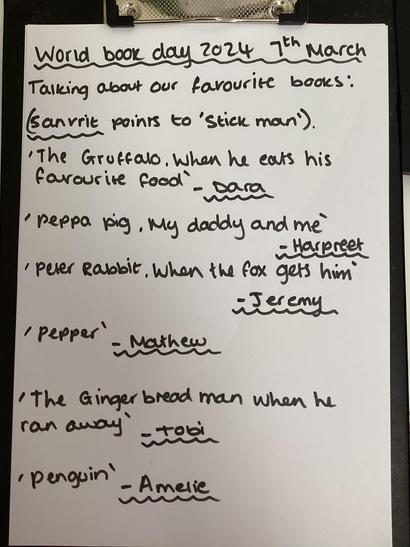 World book day 2024 7th March
Talking about our favourite books:
(Sanvrit points to 'Stick man').
'The Gruffalo, When he eats his
favourite food' - Dara
'Peppa pig, My daddy and me'
- Harpreet
'Peter Rabbit, When the fox gets him'
- Jeremy
'Pepper' - Mathew
'The Ginger bread man when he
ran away' - Tobi
'Penguin' - Amelie